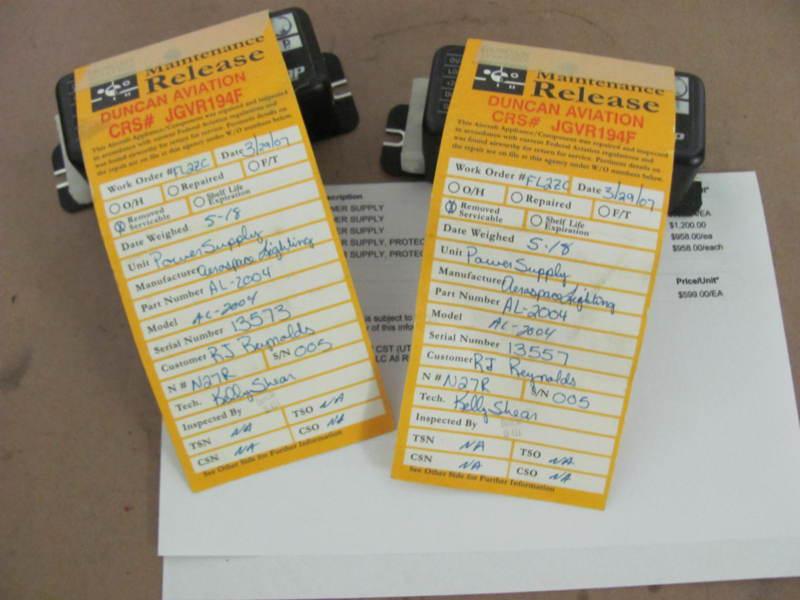 Maintenance
Release
DUNCAN AVIATION
CRS# JGVR194F
This Aircraft Appliance/Component was repaired and inspected
in accordance with current Federal Aviation regulations and
was found airworthy for return for service. Pertinent details on
the repair are on file at this agency under W/O numbers below.
Work Order # FL2ZC Date 3/29/07
O/H Repaired F/T
Removed Servicable Shelf Life Expiration
Date Weighed 5-18
Unit Power Supply
Manufacturer Aerospace Lighting
Part Number AL-2004
Model AL-2004
Serial Number 13573
Customer RJ Reynolds
N # N27R S/N 005
Tech. Kelly Shear
Inspected By
TSN NA TSO NA
CSN NA CSO NA
See Other Side for Further Information
Maintenance
Release
DUNCAN AVIATION
CRS# JGVR194F
This Aircraft Appliance/Component was repaired and inspected
in accordance with current Federal Aviation regulations and
was found airworthy for return for service. Pertinent details on
the repair are on file at this agency under W/O numbers below.
Work Order # FL2ZC Date 3/29/07
O/H Repaired F/T
Removed Servicable Shelf Life Expiration
Date Weighed 5-18
Unit Power Supply
Manufacturer Aerospace Lighting
Part Number AL-2004
Model AL-2004
Serial Number 13557
Customer RJ Reynolds
N # N27R S/N 005
Tech. Kelly Shear
Inspected By
TSN NA TSO NA
CSN NA CSO NA
See Other Side for Further Information
cription
ER SUPPLY
ER SUPPLY
ER SUPPLY
ER SUPPLY, PROTEC
ER SUPPLY, PROTE
/EA
$1,200.00
$958.00/ea
$958.00/each
Price/Unit*
$599.00/EA
is subject to
of this infor
CST (UT
LC All R